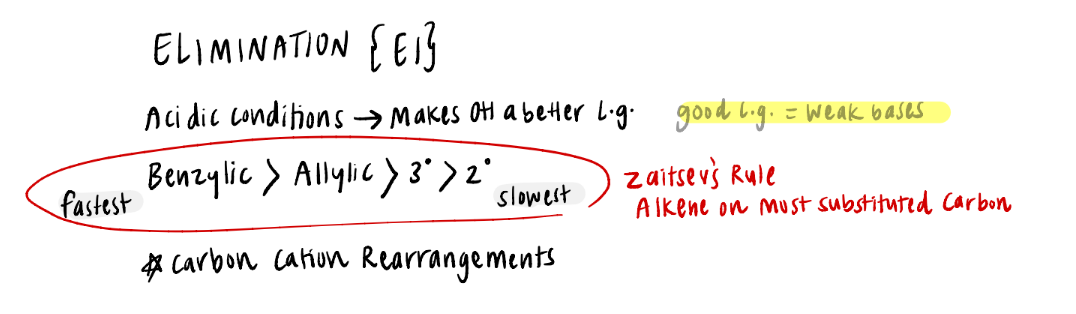 ELIMINATION {E1}
Acidic conditions → Makes OH a better l.g. good l.g. = weak bases
Benzylic > Allylic > 3° > 2°
fastest slowest
Zaitsev's Rule
Alkene on most substituted carbon
* carbon cation Rearrangements